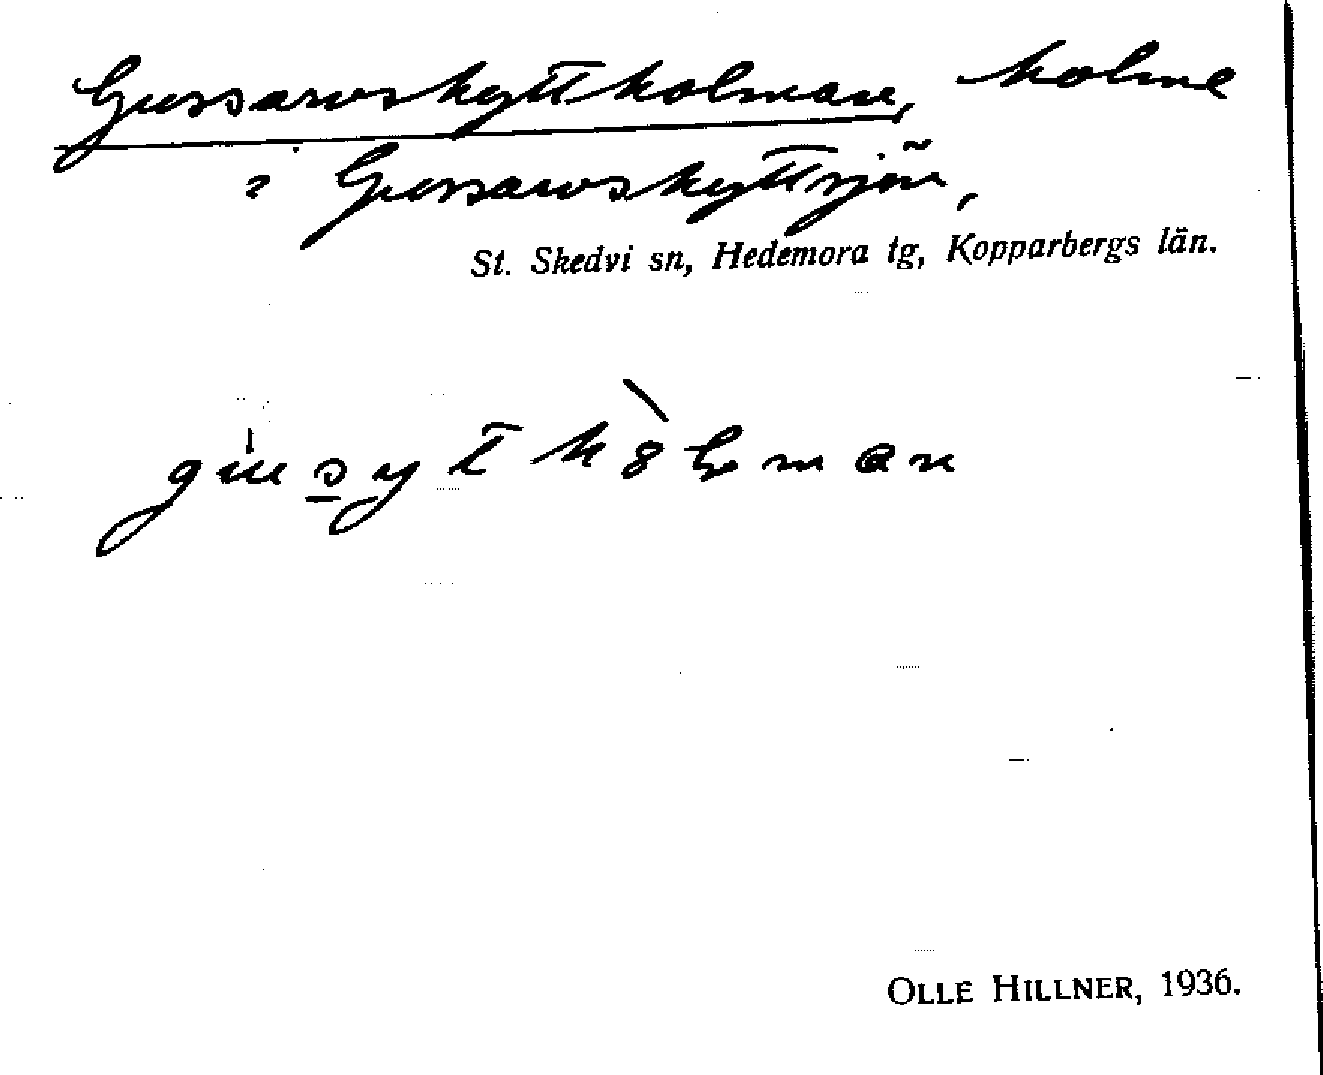 Gussarvshyttholman, holme
i Gussarvshyttsjön,
St. Skedvi sn, Hedemora tg, Kopparbergs län.
OLLE HILLNER, 1936.